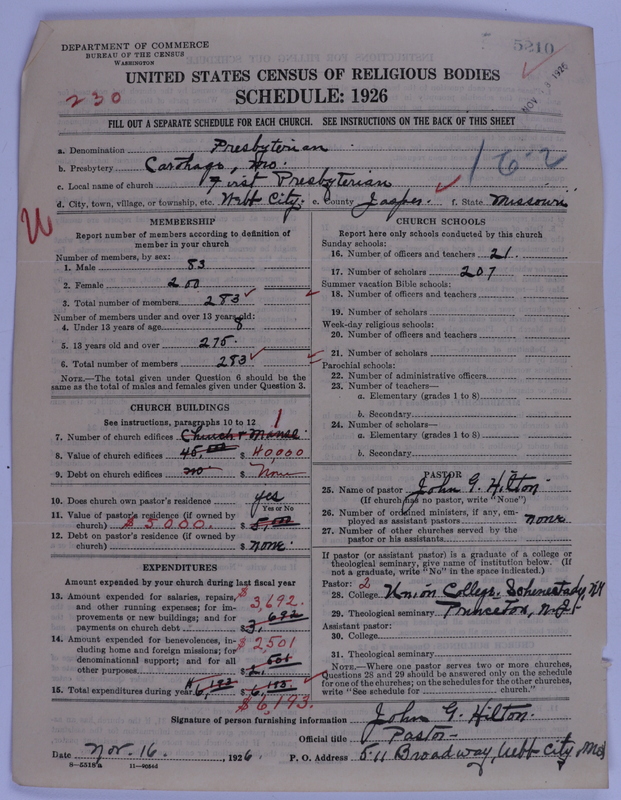 DEPARTMENT OF COMMERCE
BUREAU OF THE CENSUS
WASHINGTON
5210
NOV 1926
UNITED STATES CENSUS OF RELIGIOUS BODIES
230
SCHEDULE: 1926
FILL OUT A SEPARATE SCHEDULE FOR EACH CHURCH. SEE INSTRUCTIONS ON THE BACK OF THIS SHEET
a. Denomination Presbyterian
b. Presbytery Carthage, Mo.
162
c. Local name of church First Presbyterian
d. City, town, village, or township, etc. Webb City. e. County Jasper. f. State Missouri
MEMBERSHIP
Report number of members according to definition of
member in your church
Number of members, by sex:
1. Male 83
2. Female 200
3. Total number of members 283
Number of members under and over 13 years old:
4. Under 13 years of age 8
5. 13 years old and over 275.
6. Total number of members 283
NOTE.—The total given under Question 6 should be the
same as the total of males and females given under Question 3.
CHURCH BUILDINGS
See instructions, paragraphs 10 to 12
7. Number of church edifices Church & Manse 1
8. Value of church edifices 45,000 $ 40000
9. Debt on church edifices no $ None
10. Does church own pastor's residence yes
Yes or No
11. Value of pastor's residence (if owned by
church) $5000. $ 5,000
12. Debt on pastor's residence (if owned by
church) $ none.
EXPENDITURES
Amount expended by your church during last fiscal year
13. Amount expended for salaries, repairs, $3,692.
and other running expenses; for im-
provements or new buildings; and for
payments on church debt $ 3,692
14. Amount expended for benevolences, in- $2501
cluding home and foreign missions; for
denominational support; and for all
other purposes. $
15. Total expenditures during year 6,193 $ 6,193.
$6,193.
CHURCH SCHOOLS
Report here only schools conducted by this church
Sunday schools:
16. Number of officers and teachers 21.
17. Number of scholars 207
Summer vacation Bible schools:
18. Number of officers and teachers
19. Number of scholars
Week-day religious schools:
20. Number of officers and teachers
21. Number of scholars
Parochial schools:
22. Number of administrative officers
23. Number of teachers—
a. Elementary (grades 1 to 8)
b. Secondary
24. Number of scholars—
a. Elementary (grades 1 to 8)
b. Secondary
PASTOR
25. Name of pastor John G. Hilton
(If church has no pastor, write "None")
26. Number of ordained ministers, if any, em-
ployed as assistant pastors none
27. Number of other churches served by the
pastor or his assistants
If pastor (or assistant pastor) is a graduate of a college or
theological seminary, give name of institution below. (If
not a graduate, write "No" in the space indicated.)
Pastor: 2
28. College Union College. Schenectady, NY
29. Theological seminary Princeton, N.J.
Assistant pastor:
30. College
31. Theological seminary
NOTE.—Where one pastor serves two or more churches,
Questions 28 and 29 should be answered only on the schedule
for one of the churches; on the schedules for the other churches,
write "See schedule for church."
Signature of person furnishing information John G. Hilton.
Official title Pastor-
Date Nov. 16. , 1926. P. O. Address 511 Broadway, Webb City, Mo.
8-5518a 11-9034d